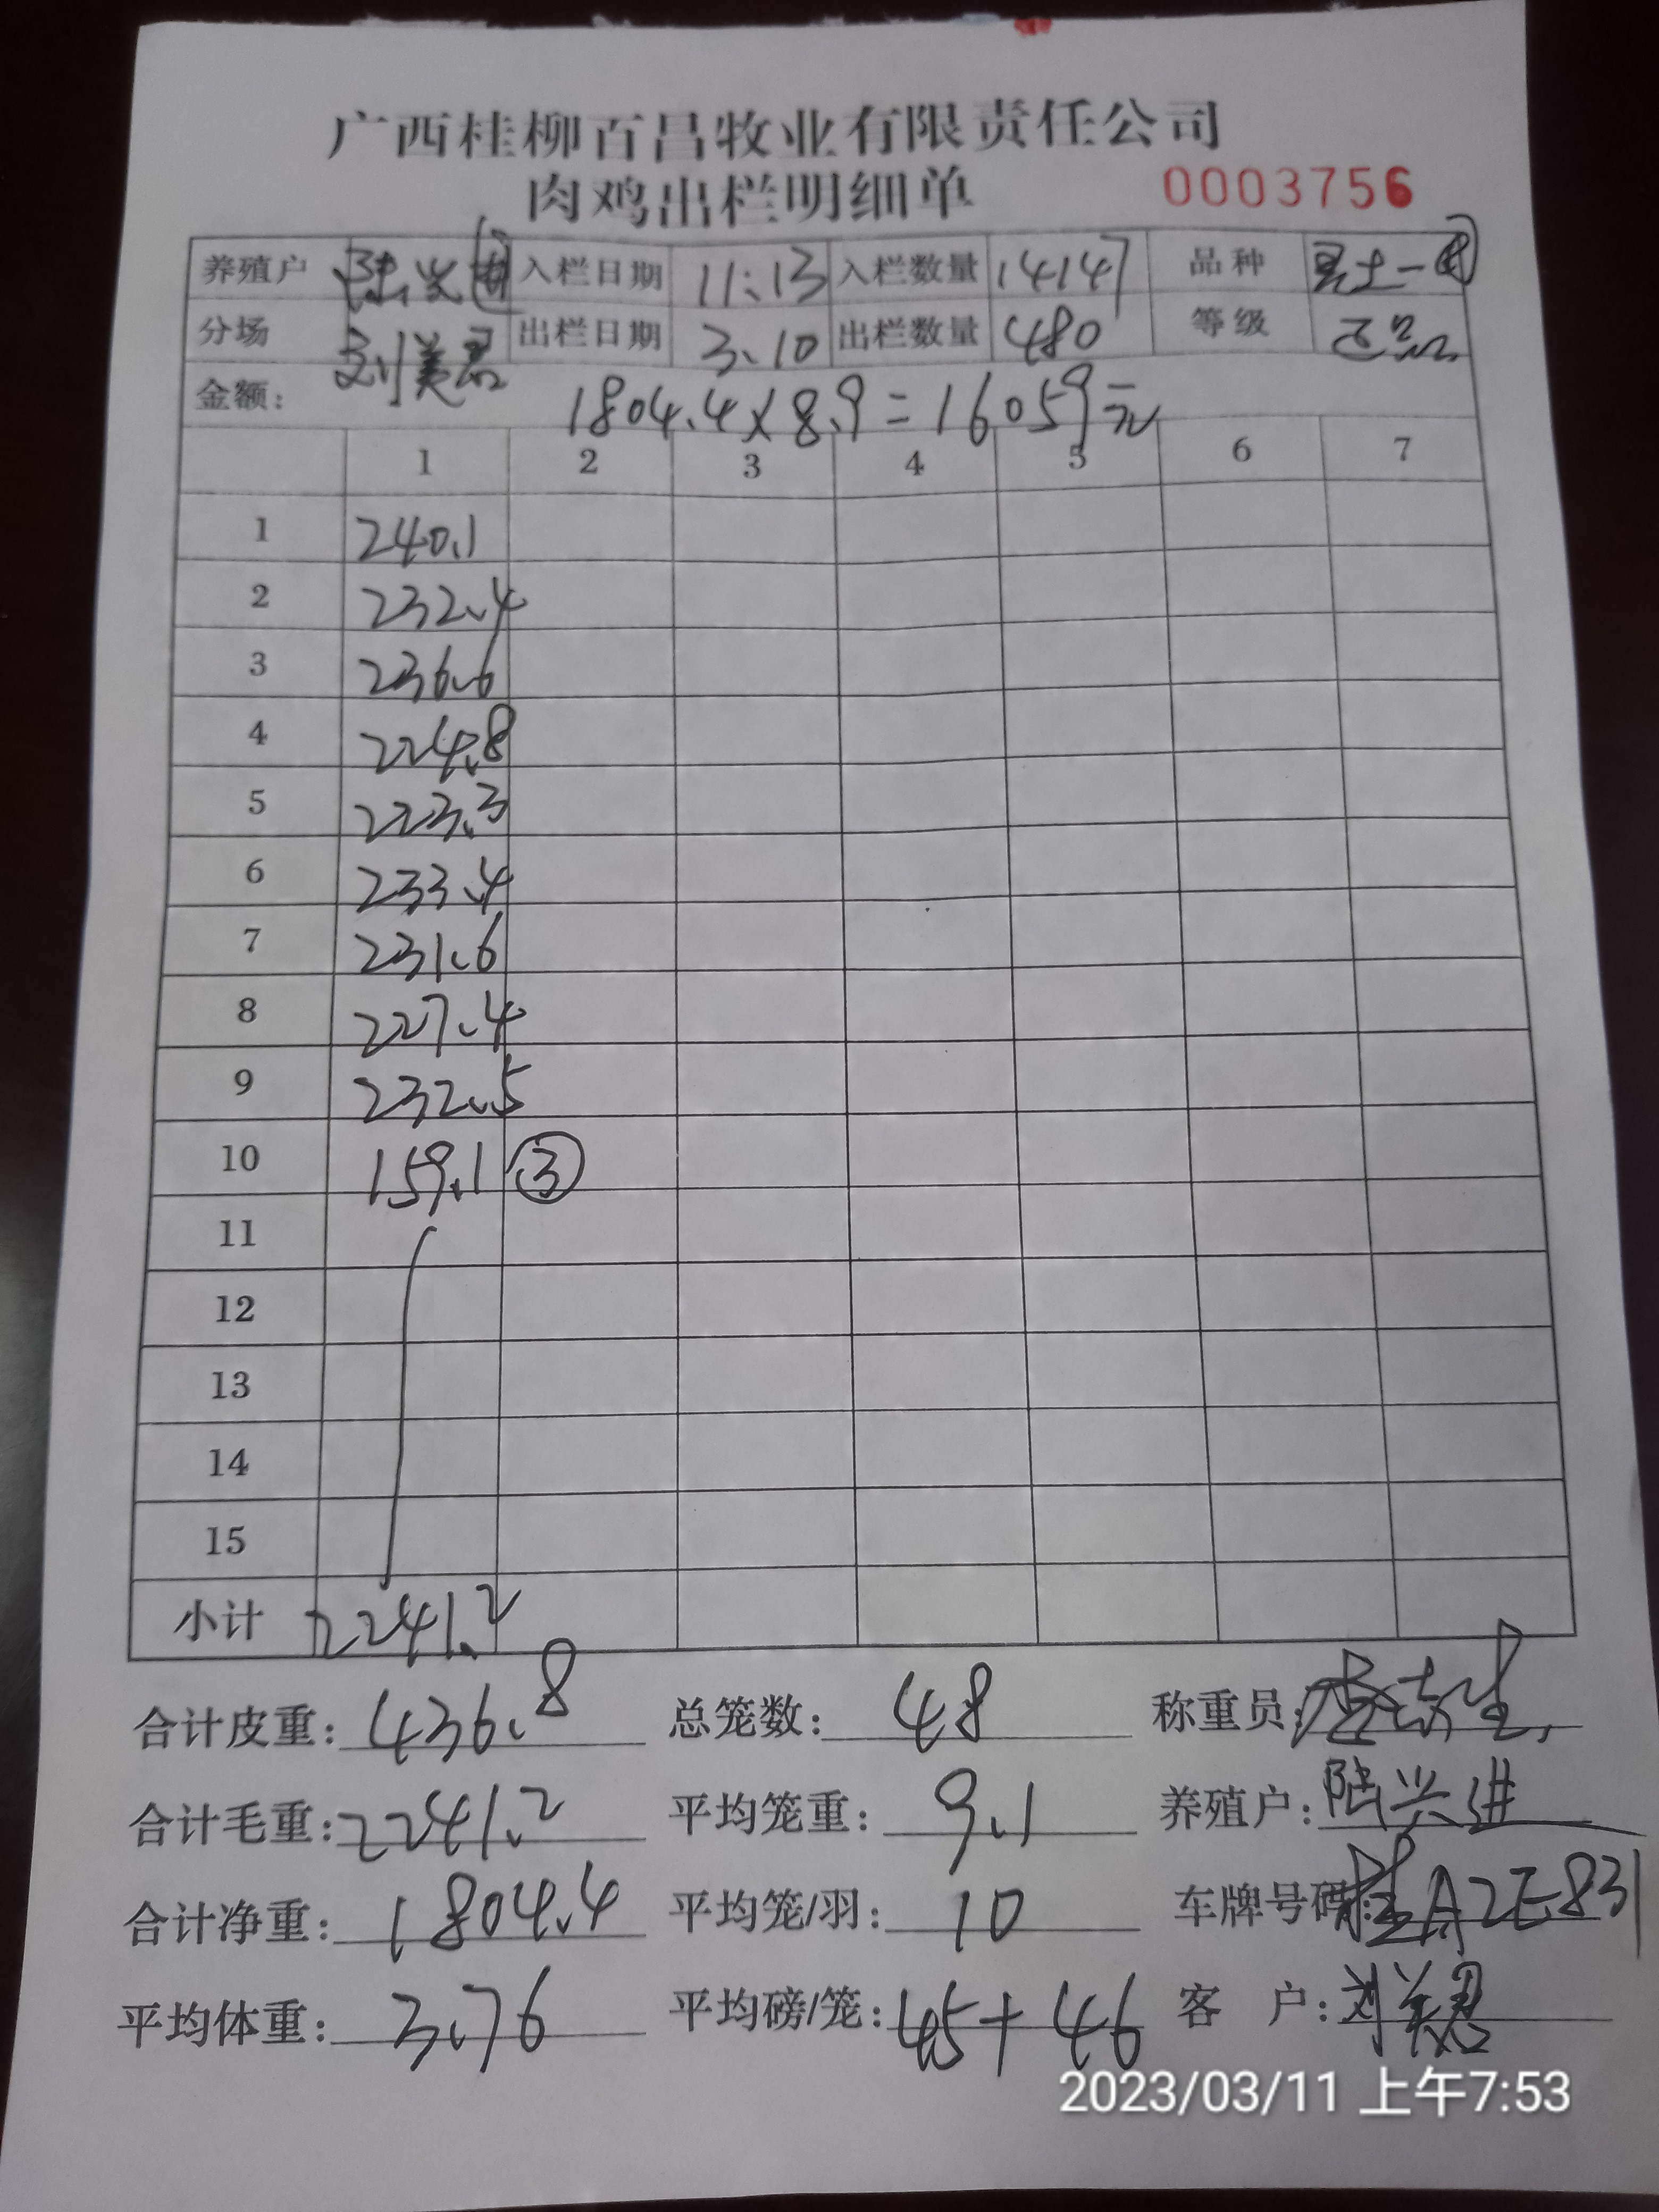 广西桂柳百昌牧业有限责任公司
肉鸡出栏明细单 0003756
养殖户 入栏日期 11.13 入栏数量 14147 品种 土一
分场 刘美君 出栏日期 3.10 出栏数量 480 等级 正品
金额: 1804.4×8.9=16059元
1 2 3 4 5 6 7
1 240.1
2 232.4
3 236.6
4 224.8
5 223.3
6 233.4
7 231.6
8 227.4
9 232.5
10 159.1 ③
11
12
13
14
15
小计 2241.2
合计皮重: 436.8 总笼数: 48 称重员:
合计毛重: 2241.2 平均笼重: 9.1 养殖户: 陆兴进
合计净重: 1804.4 平均笼/羽: 10 车牌号码: 桂A2E831
平均体重: 3.76 平均磅/笼: 45+46 客 户: 刘美君
2023/03/11 上午7:53